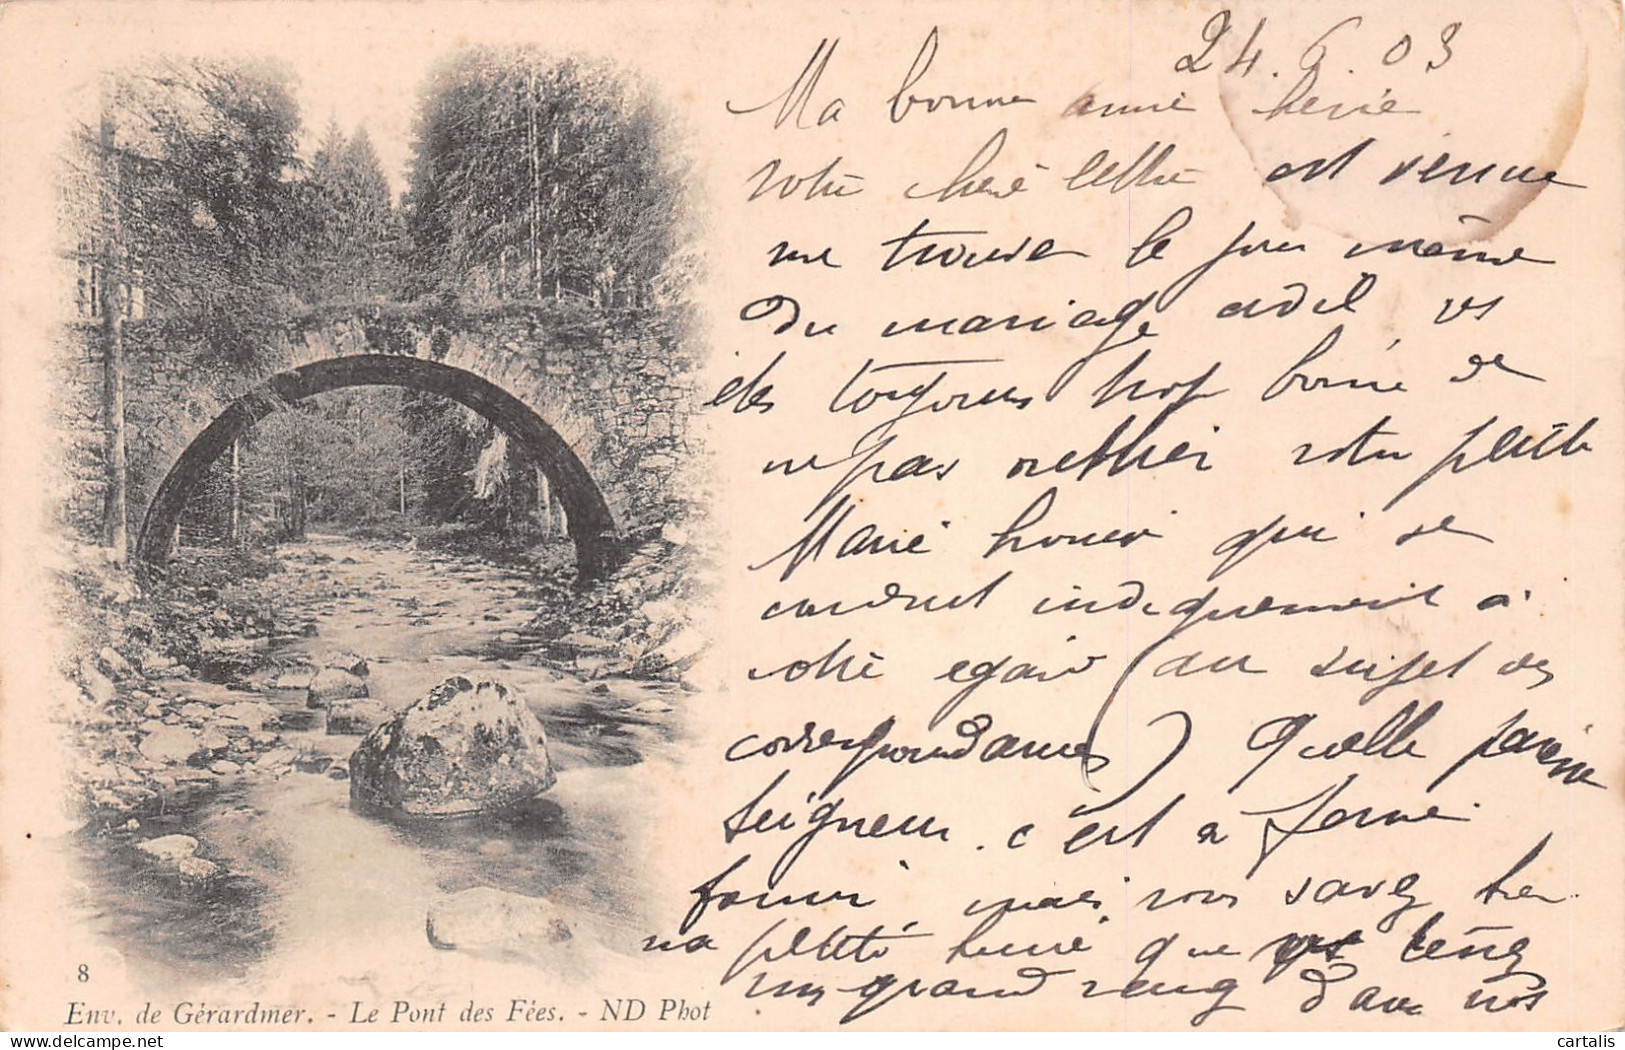 24.6.03
Ma bonne amie
votre chère lettre est venue
me trouver le jour même
du mariage civil vs
êtes toujours trop bonne de
ne pas oublier votre petite
Marie qui se
conduit indignement à
votre égard (au sujet des
correspondances) Quelle paresse
Seigneur. c'est à
mais vous savez bien
ma petite que vs tenez
un grand rang dans nos
8
Env. de Gérardmer. - Le Pont des Fées. - ND Phot
cartalis
delcampe.net